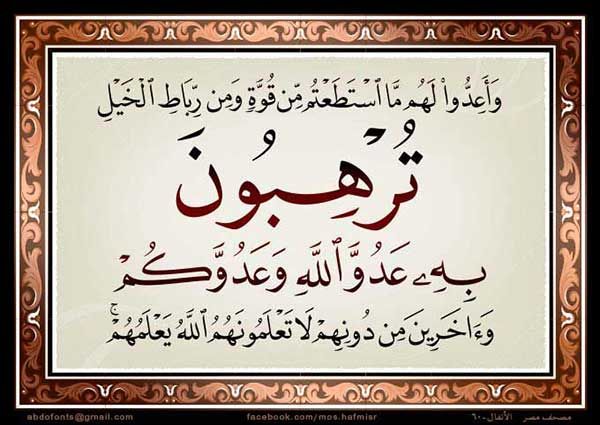 وَأَعِدُّوا۟ لَهُم مَّا ٱسْتَطَعْتُم مِّن قُوَّةٍ وَمِن رِّبَاطِ ٱلْخَيْلِ
تُرْهِبُونَ
بِهِۦ عَدُوَّ ٱللَّهِ وَعَدُوَّكُمْ
وَءَاخَرِينَ مِن دُونِهِمْ لَا تَعْلَمُونَهُمُ ٱللَّهُ يَعْلَمُهُمْ ۚ
مصحف مصر الأنفال-٦٠
facebook.com/mos.hafmisr
abdofonts@gmail.com